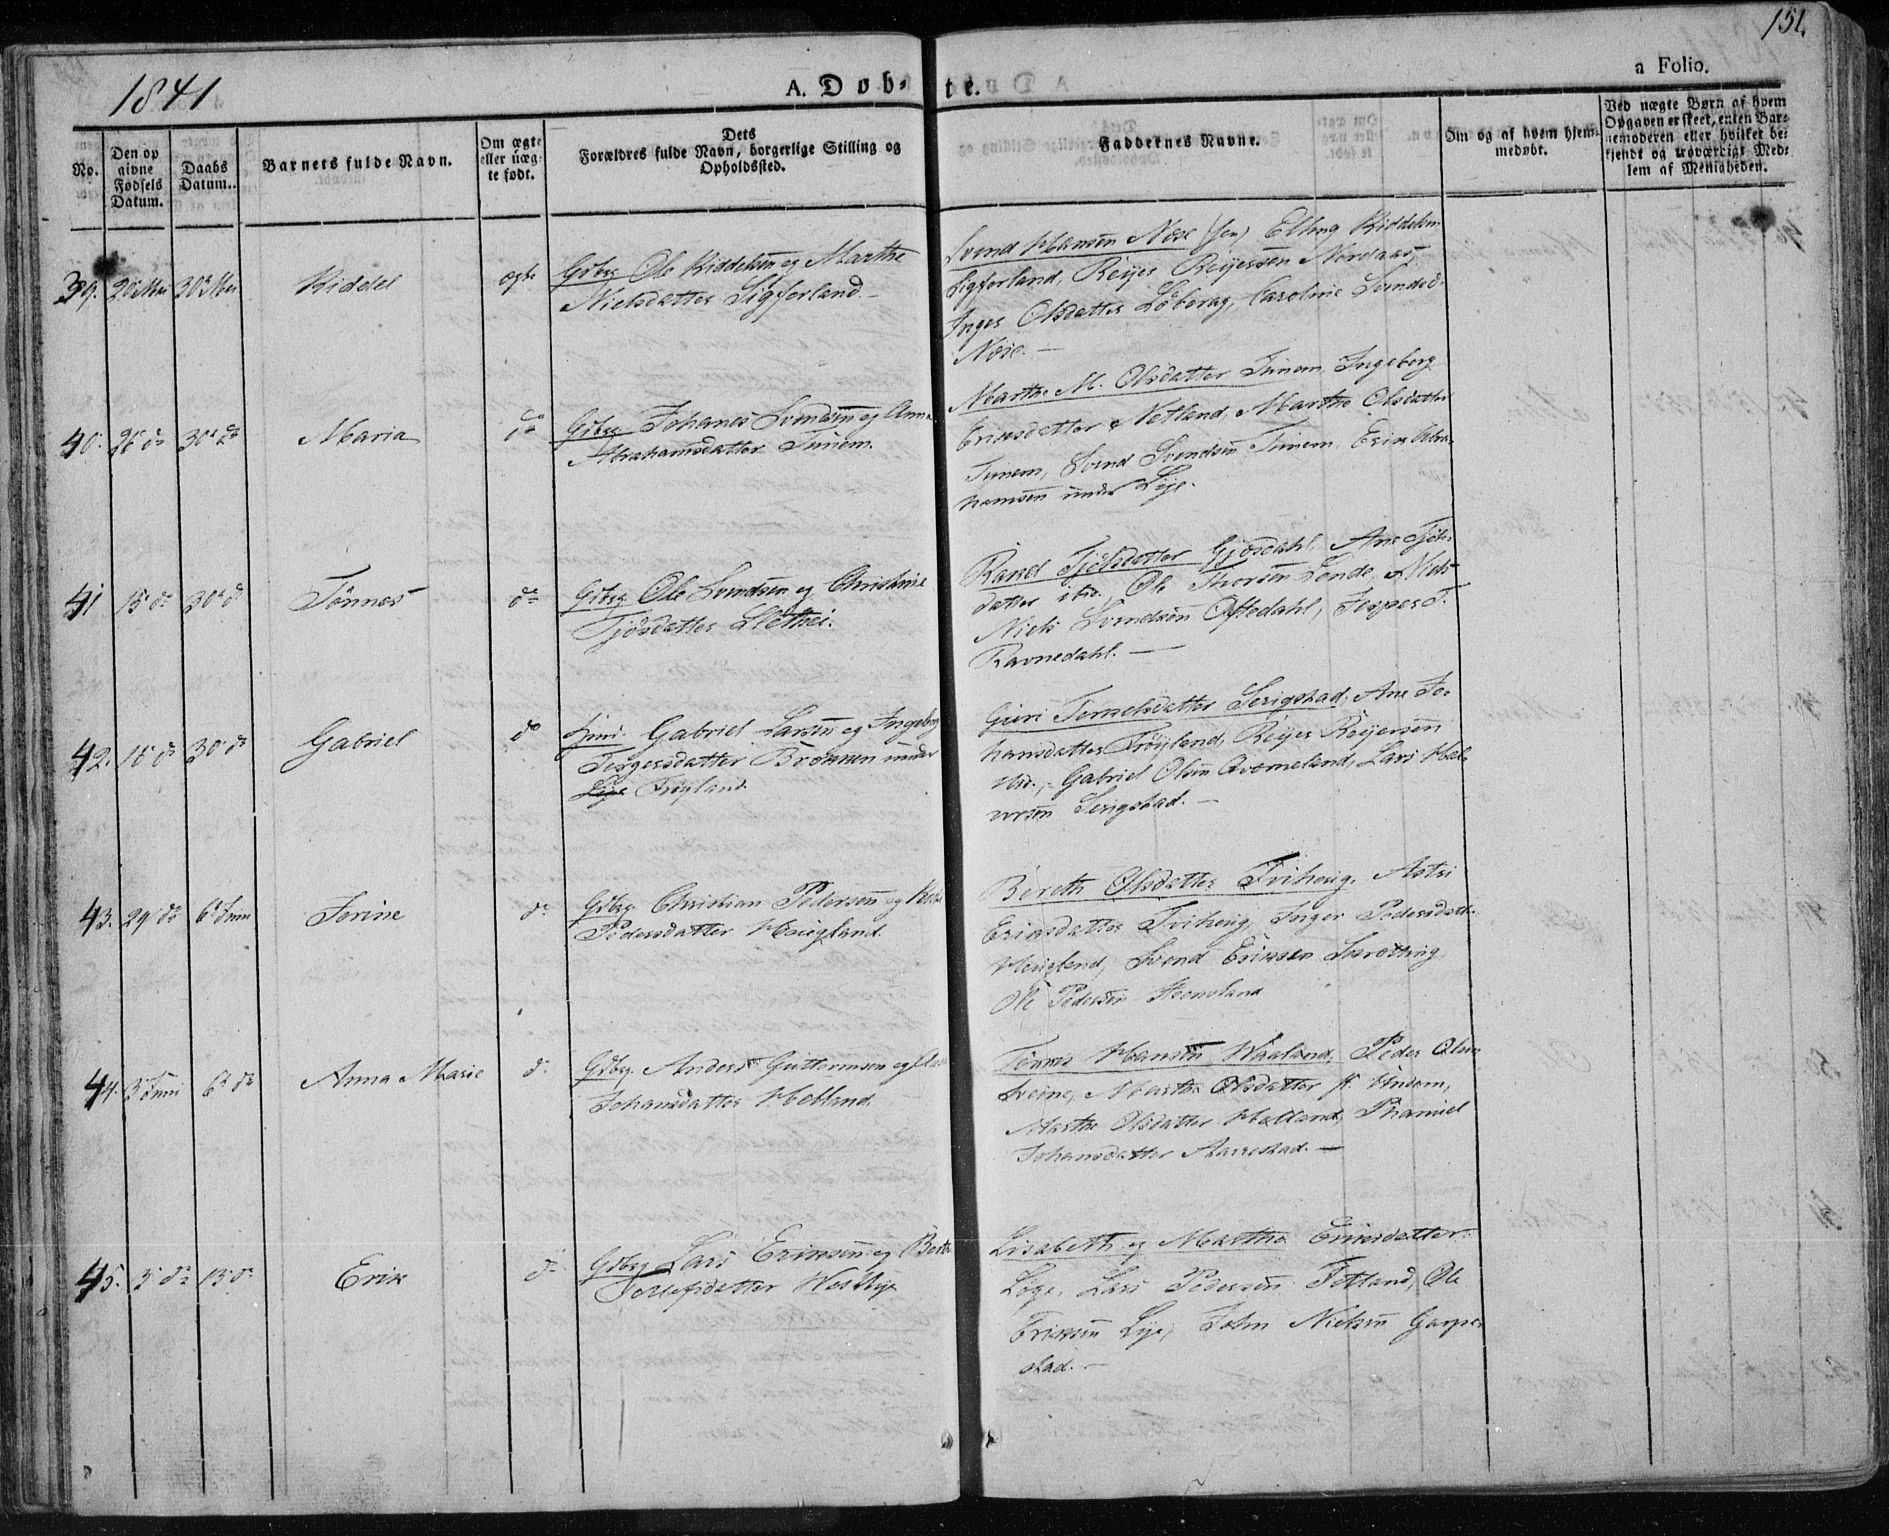 151.
1841
A. Døb-
te.
a Folio.
No.
Den op
givne
Fødsels
Datum.
Daabs
Datum.
Barnets fulde Navn.
Om ægte
eller uæg-
te født.
Dets
Forældres fulde Navn, borgerlige Stilling og
Opholdssted.
Faddernes Navne.
Om og af hvem hjem-
medøbt.
Ved uægte Børn af hvem
Opgaven er skeet, enten Bar-
nemoderen eller hvilket be-
kjendt og troværdigt Med-
lem af Menigheden.
39. 30te Mai Riddel ægte Gdbrg Ole Riddelsen og Marthe
Nielsdatter Sigforland.
Svend Hansen Nose (sen) Elling Riddelsen
Sigforland, Reijer Reijersen Nordaas,
Inger Olsdatter Løberag, Caroline Svendsd.
Nose. —
40. 26 do 30te do Maria do Gdbrg Johanes Svendsen og Anna
Abrahamsdatter Tunem.
Marthe M. Olsdatter Tunem Ingeborg
Eriksdatter Netland Marthe Olsdatter
Tunem, Svend Svendsen Tunem Erik Abra-
hamsen under Lije.
41 15 do 30te d Tønnes do Gdbrg Ole Svendsen og Christine
Tjøsdatter Slethei.
Rand Tjøsdatter Gjøsdahl, Ane Tjøs-
datter ibid., Ole Thorsen Lende,
Niels Svendsen Oftedahl, Jesper T.
Ravnedahl. —
42. 15 do 30 do Gabriel do Gabriel Larsen og Ingeborg
Tergersdatter Brønnen under
Lije Frøyland.
Guri Tornelsdatter Serigstad, Ane Jo-
hansdatter Frøyland, Reijer Reijersen
ibid., Gabriel Olsen Qvomeland, Lars Hal-
vorsen Serigstad. —
43. 29 do 6 Juni Serine do Gdbrg Christian Pedersen og
Pedersdatter Haugland.
Bereth Olsdatter Tvihoug, Astri
Eriksdatter Tvihoug, Inger Pedersdatt.
Hougland, Svend Eriksen
Ole Pedersen
44. 3 Juni 6te do Anna Marie do Gdbrg. Anders Guttormsen og
Johansdatter Helland.
Tønnes Hansen Waaland, Peder Olsen
Sveine, Marthe Olsdatter Undem,
Marthe Olsdatter Helland,
Johansdatter Aarrestad. —
45. 5 do 13 do Erik do Gdbrg Lars Eriksen og Berte
Tollefsdatter Westlije
Lisabeth og Marthe Eriksdatter
Loge, Lars Pedersen Fotland, Ole
Eriksen Lije, John Nielsen Garpe-
stad. —